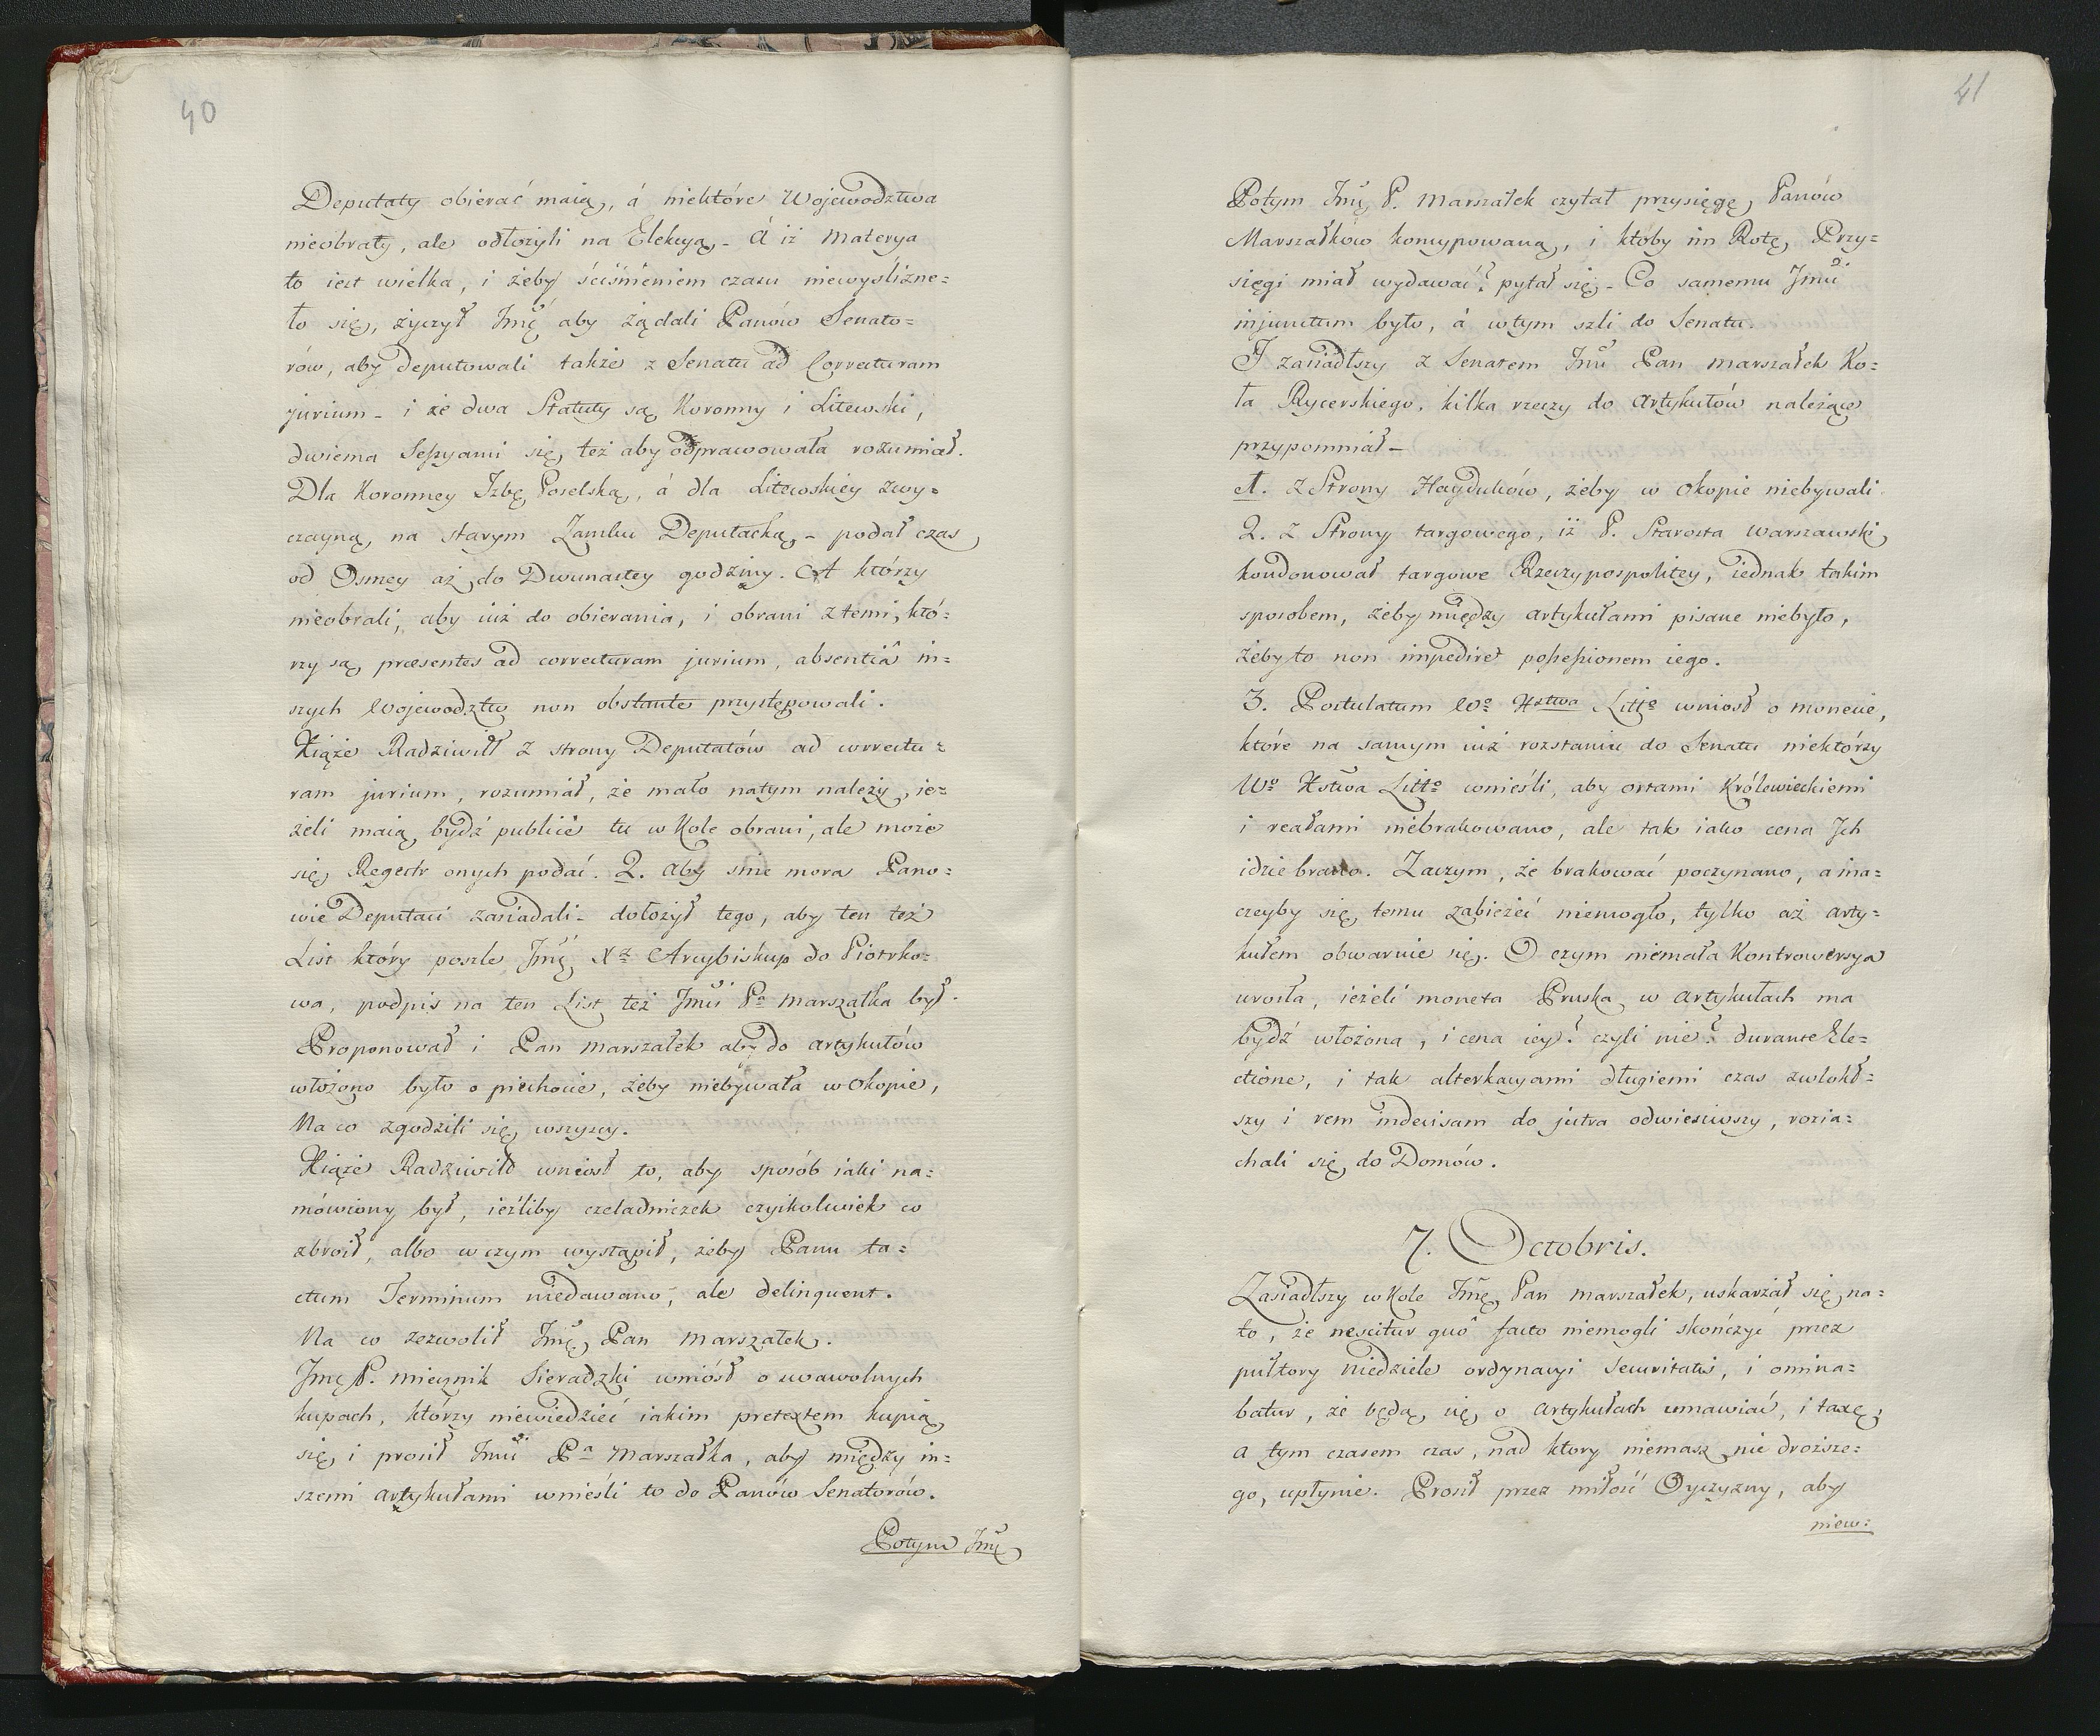 40
Deputaty obierać maią, á niektóre Wojewodztwa
nieobrały, ale odłożyli na Elekcyą - á iż Materya
to iest wielka, i żeby ściśnieniem czasu niewyślizne=
ło się, życzył Jmć aby żądali Panów Senato=
rów, aby deputowali także z Senatu ad Correcturam
jurium - i że dwa Statuty są Koronny i Litewski,
dwiema Seßyami się też aby odprawowała rozumiał.
Dla Koronney Izbę Poselską, á dla Litewskiey zwy=
czayną, na starym Zamku Deputacką - podał czas
od Osmey aż do Dwunastey godziny. A którzy
nieobrali, aby iuż do obierania, i obrani z temi, któ=
rzy są præsentes ad correcturam jurium, absentiâ in=
szych Wojewodztw non obstante przystępowali.
Xiąże Radziwiłł z strony Deputatów ad correctu=
ram jurium, rozumiał, że mało natym należy, ie=
żeli maią bydź publicè tu w Kole obrani, ale może
się Regestr onych podać. 2. aby sine mora Pano=
wie Deputaci zasiadali - dołożył tego, aby ten też
List który poszle Jmć Xz Arcybiskup do Piotrko=
wa, podpis na ten List też Jmći Pa Marszałka był.
Proponował i Pan Marszałek aby do artykułów
włożono było o piechocie, żeby niebywała w okopie,
Na co zgodzili się wszyscy.
Xiąże Radziwiłł wniosł to, aby sposób iaki na=
mówiony był, ieźliby czeladniczek czyikolwiek co
zbroił, albo w czym wystąpił, żeby Panu ta=
ctum Terminum niedawano, ale delinquent.
Na co zezwolił Jmć Pan Marszałek.
Jmć P. Miecznik Sieradzki wniósł o swawolnych
kupach, którzy niewiedzieć iakim pretextem kupią
się, i prosił Jmći Pa Marszałka, aby między in=
szemi artykułami wnieśli to do Panów Senatorów.
Potym Jmć
41
Potym Jmć P. Marszałek czytał przysięgę Panów
Marszałków koncypowaną, i któby im Rotę Przy=
sięgi miał wydawać? pytał się - Co samemu Jmći
injunctum było, á wtym szli do Senatu.
I zasiadłszy z Senatem Jmć Pan Marszałek Ko=
ła Rycerskiego, kilka rzeczy do artykułów należące
przypomniał -
1. Z Strony Hayduków, żeby w okopie niebywali.
2. Z Strony targowego, iż P. Starosta Warszawski
kondonował targowe Rzeczypospolitey, iednak takim
sposobem, żeby między artykułami pisane niebyło,
żeby to non impediret poßeßionem iego.
3. Postulatum Wo Xstwa Litto wniosł o monecie,
które na samym iuż rozstaniu do Senatu niektórzy
Wo Xstwa Litto wnieśli, aby ortami Królewieckiemi
i reałami niebrakowano, ale tak iako cena Ich
idzie brano. Zaczym, że brakować poczynano, a ina=
czeyby się temu zabieżeć niemogło, tylko aż arty=
kułem obwarnie się. O czym niemała Kontrowersya
urosła, ieżeli moneta Pruska w artykułach ma
bydź włożona, i cena iey? czyli nie? durante Ele=
ctione, i tak alterkacyami długiemi czas zwlokł=
szy i rem indecisam do jutra odwiesiwszy, rozia=
chali się do Domów.
7. Octobris.
Zasiadłszy w Kole Jmć Pan Marszałek, uskarżał się na=
to, że nescitur quô facto niemogli skończyć przez
pułtory Niedziele ordynacyi Securitatis, i omina=
batur, że będą się o artykułach umawiać, i taxę,
a tym czasem czas, nad ktory niemasz nic droższe=
go, upłynie. Prosił przez miłość Oyczyzny, aby
niew=